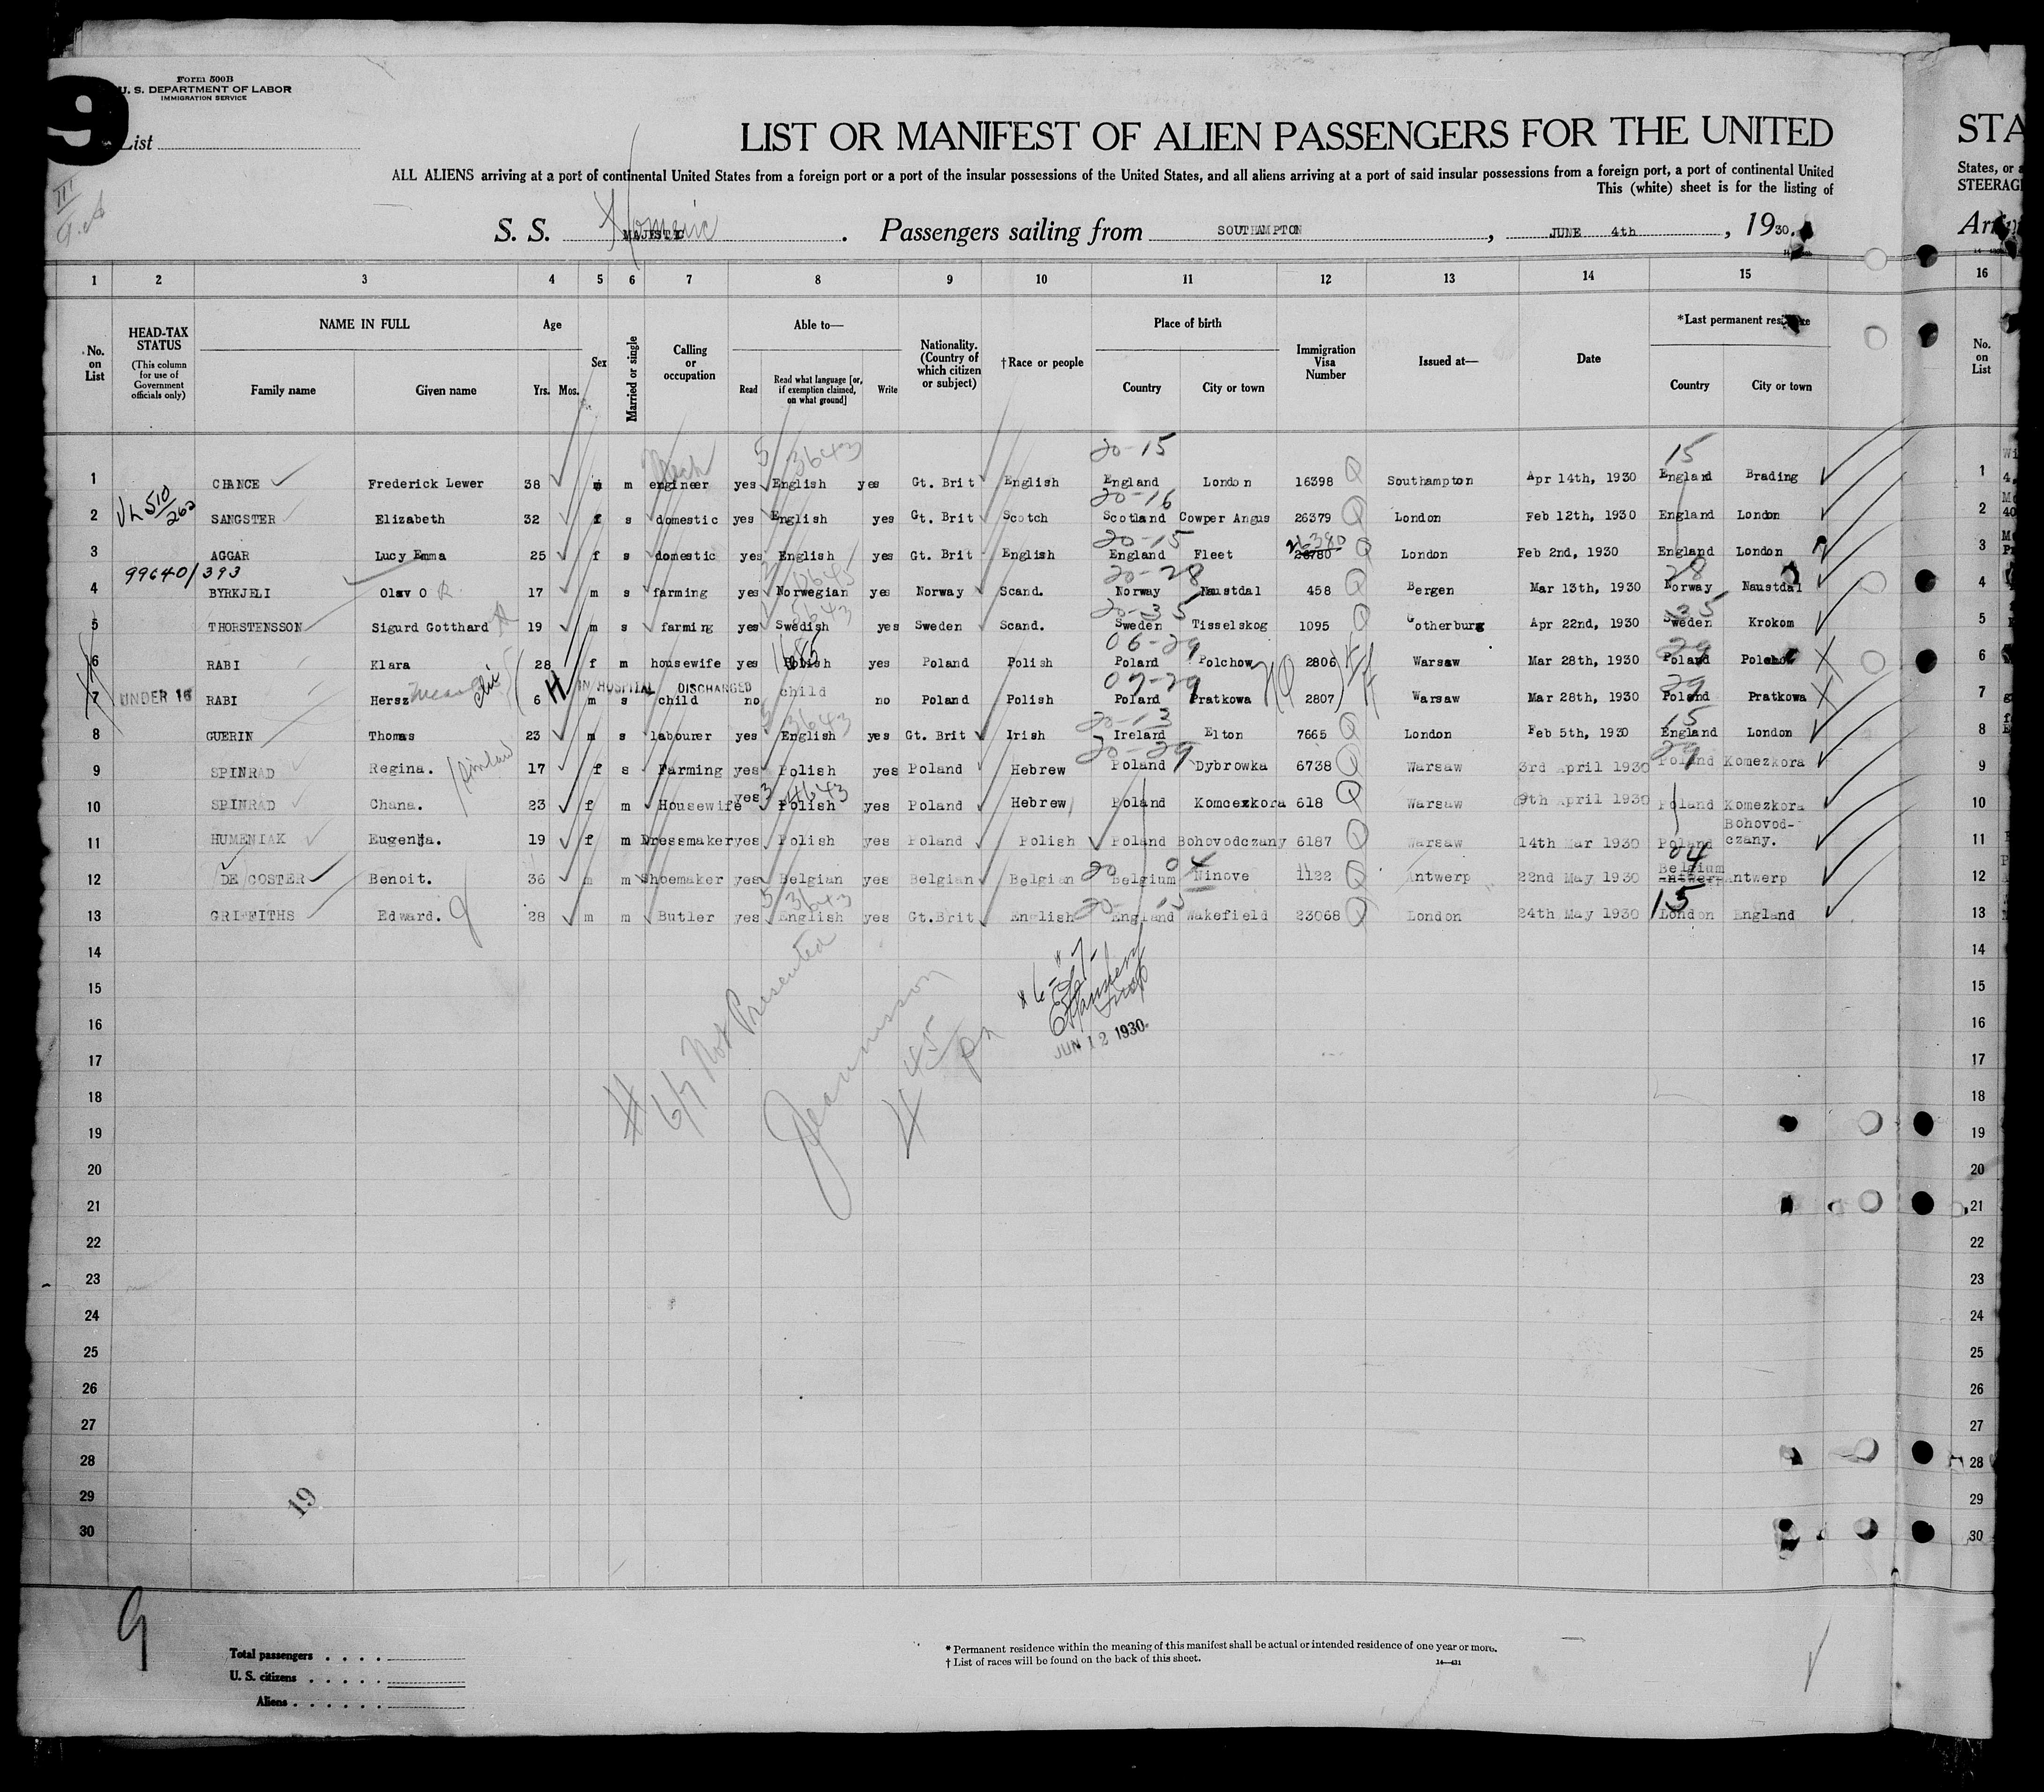 9
Form 500B
U. S. DEPARTMENT OF LABOR
IMMIGRATION SERVICE
List
LIST OR MANIFEST OF ALIEN PASSENGERS FOR THE UNITED
STA
ALL ALIENS arriving at a port of continental United States from a foreign port or a port of the insular possessions of the United States, and all aliens arriving at a port of said insular possessions from a foreign port, a port of continental United
States, or a
This (white) sheet is for the listing of
STEERAG
S. S. MAJESTIC Homeric . Passengers sailing from SOUTHAMPTON , JUNE 4th , 1930.
1 2 3 4 5 6 7 8 9 10 11 12 13 14 15 16
No. on List
HEAD-TAX STATUS
(This column for use of Government officials only)
NAME IN FULL
Family name Given name
Age
Yrs. Mos.
Sex
Married or single
Calling or occupation
Able to—
Read
Read what language [or, if exemption claimed, on what ground]
Write
Nationality. (Country of which citizen or subject)
†Race or people
Place of birth
Country City or town
Immigration Visa Number
Issued at—
Date
*Last permanent residence
Country City or town
No. on List
Mech 5 3643 20-15 15
1 CHANCE Frederick Lewer 38 m m engineer yes English yes Gt. Brit English England London 16398 Q Southampton Apr 14th, 1930 England Brading 1
510/262 20-16
2 SANGSTER Elizabeth 32 f s domestic yes English yes Gt. Brit Scotch Scotland Cowper Angus 26379 Q London Feb 12th, 1930 England London 2
20-15 26380
3 AGGAR Lucy Emma 25 f s domestic yes English yes Gt. Brit English England Fleet 26780 Q London Feb 2nd, 1930 England London 3
99640/393 20-28 28
4 BYRKJELI Olav O 17 m s farming yes Norwegian yes Norway Scand. Norway Naustdal 458 Q Bergen Mar 13th, 1930 Norway Naustdal 4
20-35 35
5 THORSTENSSON Sigurd Gotthard 19 m s farming yes Swedish yes Sweden Scand. Sweden Tisselskog 1095 Q Gotherburg Apr 22nd, 1930 Sweden Krokom 5
06-29 29
6 RABI Klara 28 f m housewife yes Polish yes Poland Polish Poland Polchow 2806 Warsaw Mar 28th, 1930 Poland Polchow 6
H IN HOSPITAL DISCHARGED 07-29 29
7 UNDER 16 RABI Hersz 6 m s child no child no Poland Polish Poland Pratkowa 2807 Warsaw Mar 28th, 1930 Poland Pratkowa 7
3643 20-13 15
8 GUERIN Thomas 23 m s labourer yes English yes Gt. Brit Irish Ireland Elton 7665 Q London Feb 5th, 1930 England London 8
20-29 29
9 SPINRAD Regina. 17 f s Farming yes Polish yes Poland Hebrew Poland Dybrowka 6738 Q Warsaw 3rd April 1930 Poland Komezkora 9
3 4643
10 SPINRAD Chana. 23 f m Housewife yes Polish yes Poland Hebrew Poland Komcezkora 618 Q Warsaw 9th April 1930 Poland Komezkora 10
11 HUMENIAK Eugenja. 19 f m Dressmaker yes Polish yes Poland Polish Poland Bohovodczany 6187 Q Warsaw 14th Mar 1930 Poland Bohovod-czany. 11
20 04 04
12 DE COSTER Benoit. 36 m m Shoemaker yes Belgian yes Belgian Belgian Belgium Ninove 1122 Q Antwerp 22nd May 1930 Belgium Antwerp Antwerp 12
5 3643 20-15 15
13 GRIFFITHS Edward. 28 m m Butler yes English yes Gt.Brit English England Wakefield 23068 Q London 24th May 1930 London England 13
14 14
15 15
16 16
17 17
18 18
19 19
20 20
21 21
22 22
23 23
24 24
25 25
26 26
27 27
28 28
29 29
30 30
# 6/7 Not Presented
JUN 12 1930
19
9
Total passengers
U. S. citizens
Aliens
* Permanent residence within the meaning of this manifest shall be actual or intended residence of one year or more.
† List of races will be found on the back of this sheet.
14—431